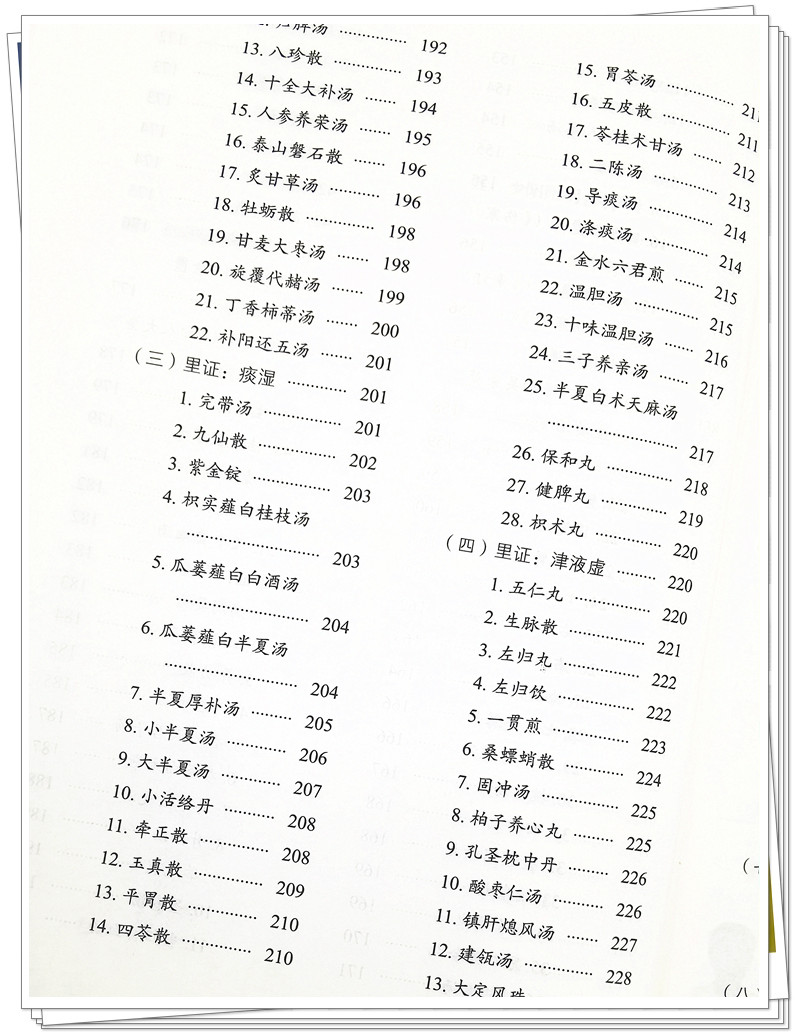 归脾汤 ………… 192
13. 八珍散 ………… 193
14. 十全大补汤 …… 194
15. 人参养荣汤 …… 195
16. 泰山磐石散 …… 196
17. 炙甘草汤 ……… 196
18. 牡蛎散 ………… 198
19. 甘麦大枣汤 …… 198
20. 旋覆代赭汤 …… 199
21. 丁香柿蒂汤 …… 200
22. 补阳还五汤 …… 201
（三）里证：痰湿 ………… 201
1. 完带汤 ………… 201
2. 九仙散 ………… 202
3. 紫金锭 ………… 203
4. 枳实薤白桂枝汤
………………… 203
5. 瓜蒌薤白白酒汤
………………… 204
6. 瓜蒌薤白半夏汤
………………… 204
7. 半夏厚朴汤 …… 205
8. 小半夏汤 ……… 206
9. 大半夏汤 ……… 207
10. 小活络丹 ……… 208
11. 牵正散 ………… 208
12. 玉真散 ………… 209
13. 平胃散 ………… 210
14. 四苓散 ………… 210
15. 胃苓汤 ………… 211
16. 五皮散 ………… 211
17. 苓桂术甘汤 …… 212
18. 二陈汤 ………… 213
19. 导痰汤 ………… 214
20. 涤痰汤 ………… 214
21. 金水六君煎 …… 215
22. 温胆汤 ………… 215
23. 十味温胆汤 …… 216
24. 三子养亲汤 …… 217
25. 半夏白术天麻汤
………………… 217
26. 保和丸 ………… 218
27. 健脾丸 ………… 219
28. 枳术丸 ………… 220
（四）里证：津液虚 ……… 220
1. 五仁丸 ………… 220
2. 生脉散 ………… 221
3. 左归丸 ………… 222
4. 左归饮 ………… 222
5. 一贯煎 ………… 223
6. 桑螵蛸散 ……… 224
7. 固冲汤 ………… 225
8. 柏子养心丸 …… 225
9. 孔圣枕中丹 …… 226
10. 酸枣仁汤 ……… 226
11. 镇肝熄风汤 …… 227
12. 建瓴汤 ………… 228
13. 大定风珠
（八）